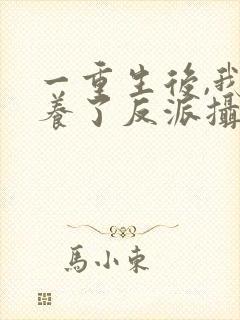 一重生後,我
養了反派攝
馬小東